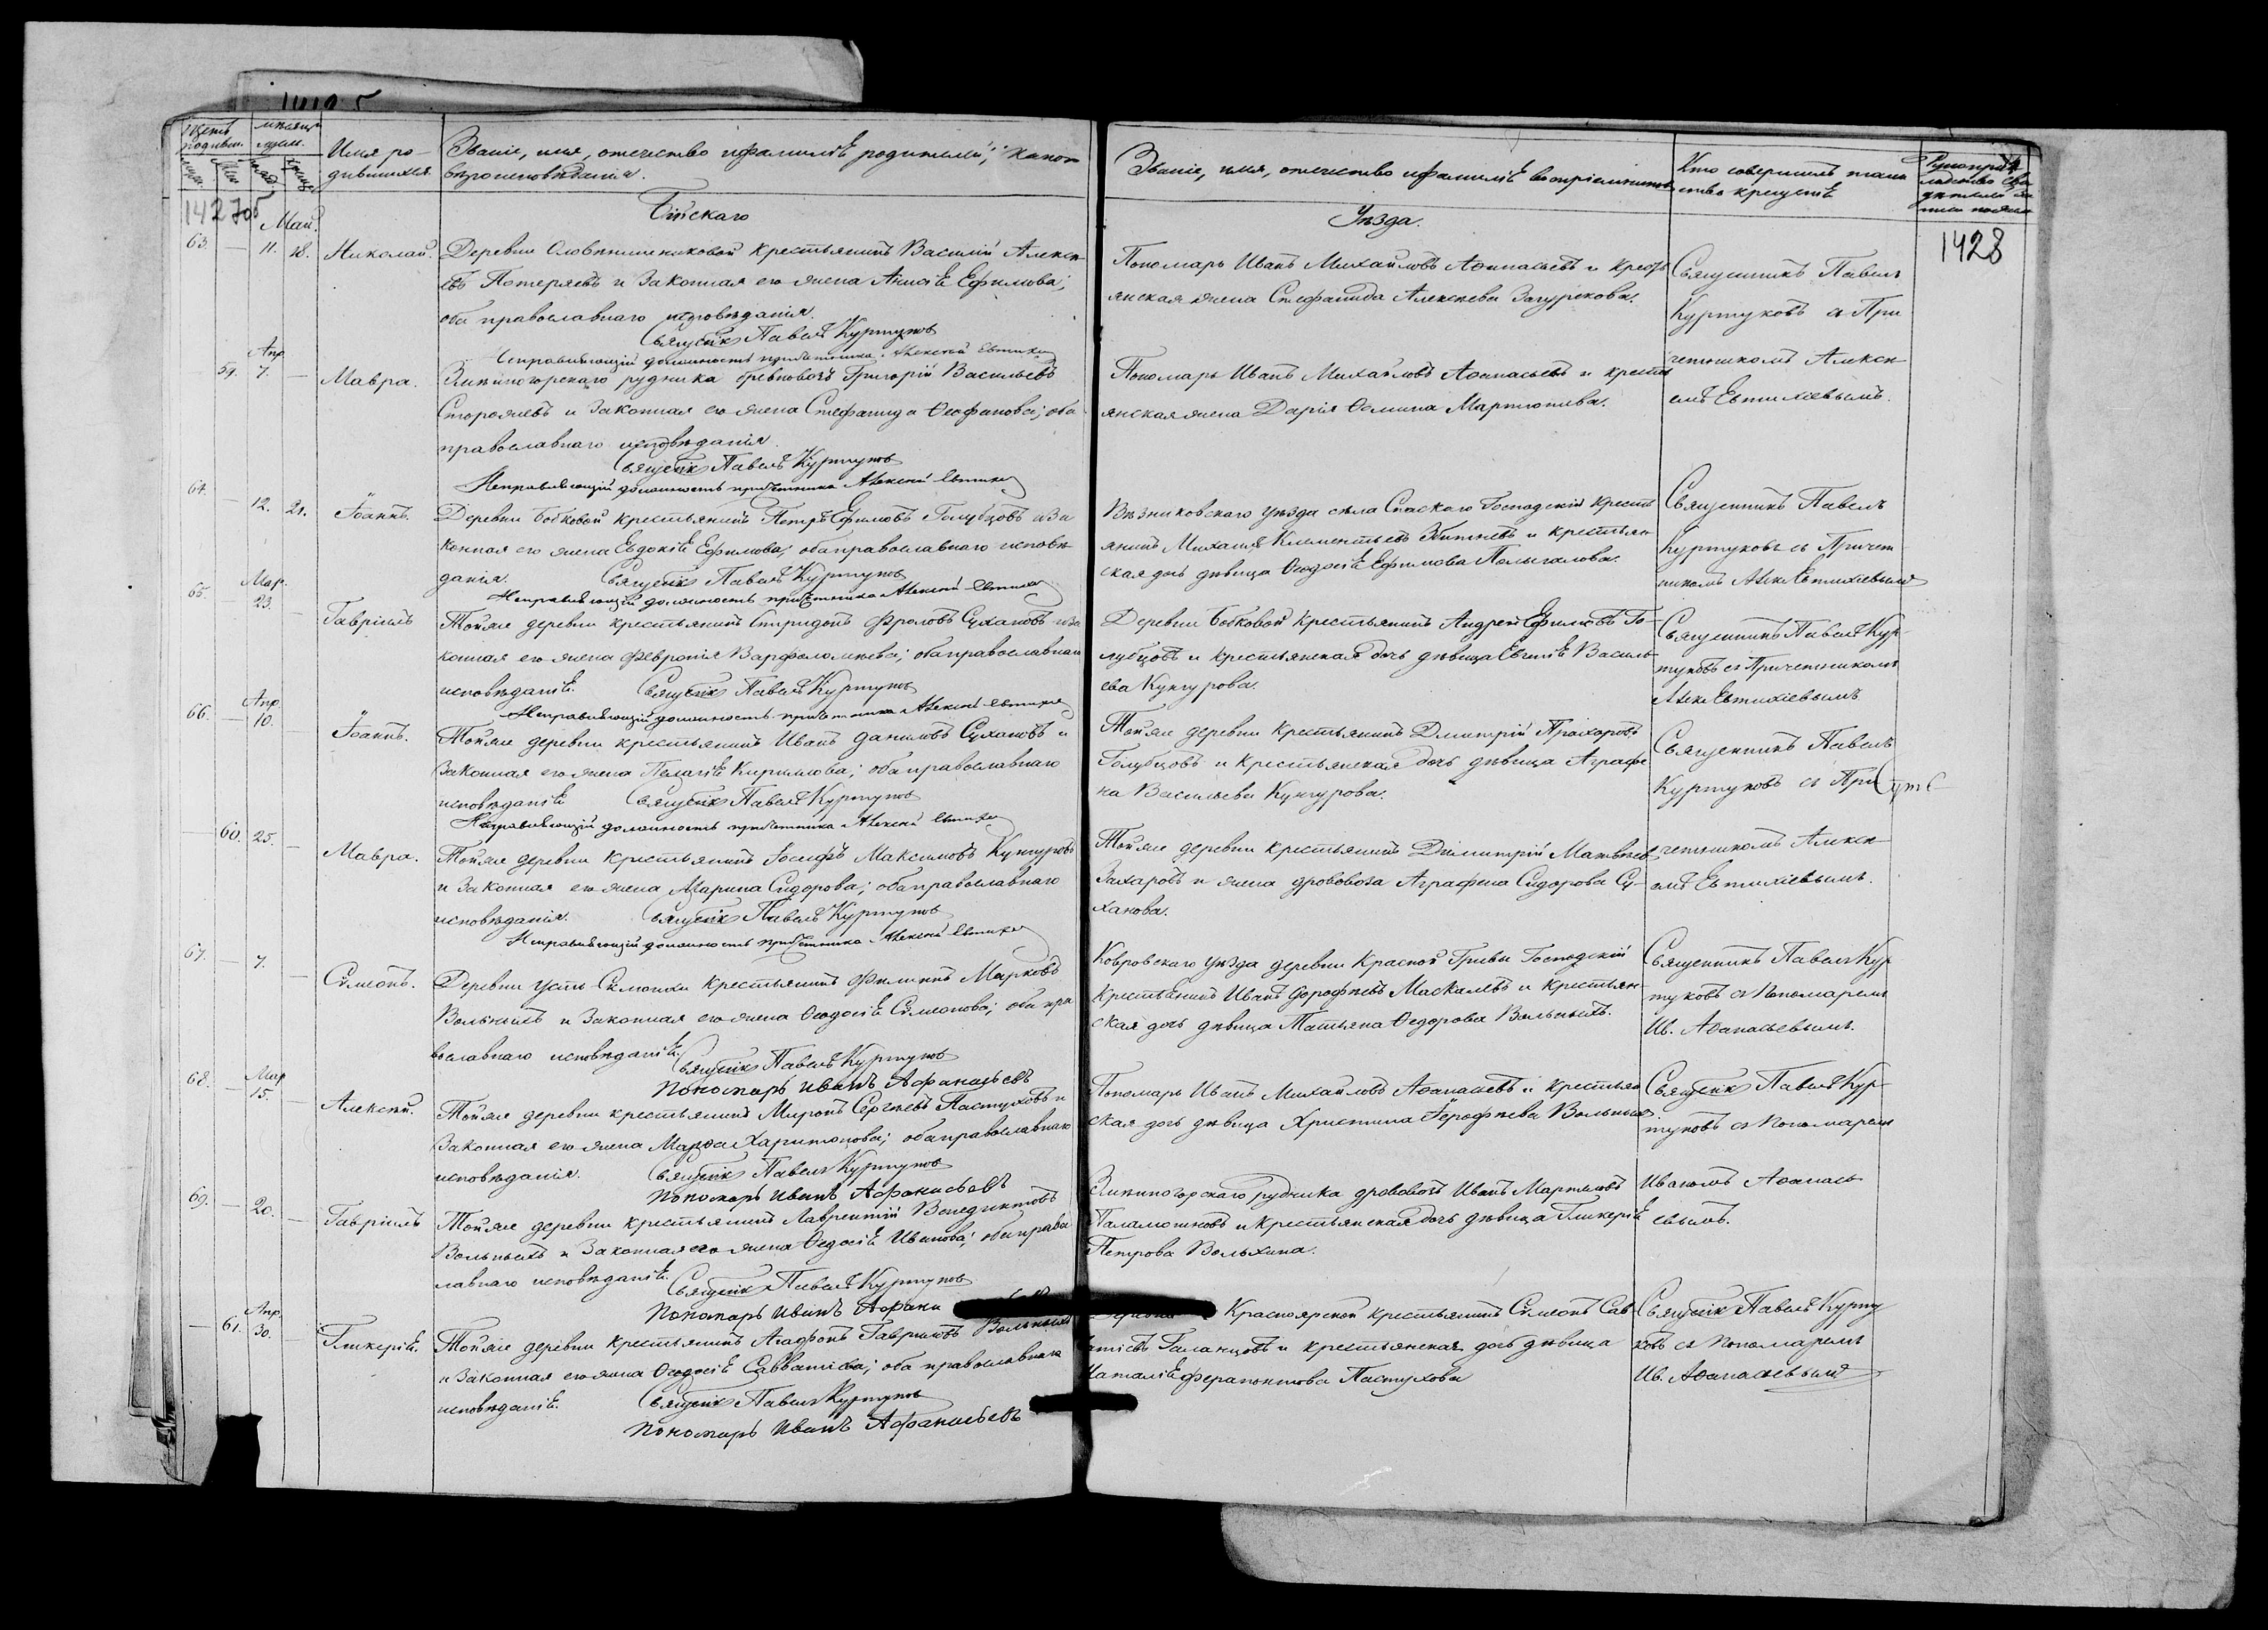 Счетъ родивш.
мѣсяцъ и день.
Имя ро-
дившихся.
Званіе, имя, отечество и фамилія родителей, и какого
вѣроисповѣданія.
Званіе, имя, отечество и фамилія воспріемниковъ
Кто совершалъ таин
ство крещенія
1427об
1428
Бійскаго
Уѣзда.
Май.
63. — 11. 18. Николай.
Деревни Словпишенковой крестьянинъ Василій Алексѣ-
евъ Потеряевъ и законная его жена Анисія Ефимова;
оба православнаго исповѣданія.
Священникъ Павелъ Куртуковъ
Исправляющій должность причетника Алексѣй Евтихіевъ
Пономарь Иванъ Михайловъ Аѳанасьевъ и крестьянская жена Стефанида Алексѣева Загурскова.
Священникъ Павелъ
Куртуковъ съ При
четникомъ Алексѣ-
емъ Евтихіевымъ.
Апр.
59. 7. — Мавра.
Змѣиногорскаго рудника бревновозъ Григорій Васильевъ
Сторожевъ и законная его жена Стефанида Ѳеофанова; оба
православнаго исповѣданія.
Священникъ Павелъ Куртуковъ
Исправляющій должность причетника Алексѣй Евтихіевъ
Пономарь Иванъ Михайловъ Аѳанасьевъ и кресть
янская жена Дарія Ѳомина Мартюшева.
64. — 12. 21. Іоаннъ.
Деревни Бобковой крестьянинъ Петръ Ефимовъ Голубцовъ и за
конная его жена Евдокія Ефимова; оба православнаго исповѣ
данія. Священникъ Павелъ Куртуковъ
Исправляющій должность причетника Алексѣй Евтихіевъ
Вязниковскаго уѣзда села Спаскаго Господскій кресть
янинъ Михаилъ Климентьевъ и крестьян
ская дочь дѣвица Ѳеодосія Ефимова Полыгалова.
Священникъ Павелъ
Куртуковъ съ Причет
никомъ Алек. Евтихіевымъ
Мар.
65. — 23. — Гавріилъ
Тойже деревни крестьянинъ Спиридонъ Фроловъ Сухановъ и за
конная его жена Февронія Варфоломеева; оба православнаго
исповѣданія. Священникъ Павелъ Куртуковъ
Исправляющій должность причетника Алексѣй Евтихіевъ
Деревни Бобковой крестьянинъ Андрей Ефимовъ Го-
лубцовъ и крестьянская дочь дѣвица Евгенія Василь-
ева Кунгурова.
Священникъ Павелъ Кур-
туковъ съ Причетникомъ
Алек. Евтихіевымъ
Апр.
66. — 10. — Іоаннъ.
Тойже деревни крестьянинъ Иванъ Даниловъ Сухановъ и
законная его жена Пелагія Кирилова; оба православнаго
исповѣданія Священникъ Павелъ Куртуковъ
Исправляющій должность причетника Алексѣй Евтихіевъ
Тойже деревни крестьянинъ Дмитрій Прохоровъ
Голубцовъ и крестьянская дочь дѣвица Аграфе
на Васильева Кунгурова.
Священникъ Павелъ
Куртуковъ съ При
четникомъ Алексѣ-
емъ Евтихіевымъ.
— 60. 25. — Мавра.
Тойже деревни крестьянинъ Іосифъ Максимовъ Кунгуровъ
и законная его жена Марина Сидорова; оба православнаго
исповѣданія. Священникъ Павелъ Куртуковъ
Исправляющій должность причетника Алексѣй Евтихіевъ
Тойже деревни крестьянинъ Димитрій Матвѣевъ
Захаровъ и жена дрововоза Аграфена Сидорова Су-
ханова.
67. — 7. — Сѵмеонъ.
Деревни Усть-Сѵмонихи крестьянинъ Филипъ Марковъ
Вольныхъ и законная его жена Ѳеодосія Сѵмеонова; оба пра
вославнаго исповѣданія.
Священникъ Павелъ Куртуковъ
Пономарь Иванъ Афанасьевъ
Ковровскаго уѣзда деревни Красной Гривы Господскій
крестьянинъ Иванъ Дорофѣевъ Маскалевъ и крестьян-
ская дочь дѣвица Татьяна Ѳедорова Вольныхъ.
Священникъ Павелъ Кур
туковъ съ Пономаремъ
Ив. Аѳанасьевымъ.
Мар.
68. — 15. — Алексѣй.
Тойже деревни крестьянинъ Миронъ Сергѣевъ Пастуховъ и
законная его жена Марѳа Харитонова; оба православнаго
исповѣданія. Священникъ Павелъ Куртуковъ
Пономарь Иванъ Афанасьевъ
Пономарь Иванъ Михайловъ Аѳанасьевъ и крестьян
ская дочь дѣвица Христина Ерофѣева Вольныхъ.
Священникъ Павелъ Кур-
туковъ съ Пономаремъ
Иваномъ Аѳанась-
евымъ.
69. — 20. — Гавріилъ
Тойже деревни крестьянинъ Лаврентій Венедиктовъ
Вольныхъ и законная его жена Ѳедосія Иванова; оба право
лавнаго исповѣданія.
Священникъ Павелъ Куртуковъ
Пономарь Иванъ Афана
Змѣиногорскаго рудника дрововозъ Иванъ Мартыновъ
Паламошновъ и крестьянская дочь дѣвица Гликерія
Петрова Волыхина.
Апр.
— 61. 30. Гликерія.
Тойже деревни крестьянинъ Агафонъ Гавриловъ Вольныхъ
и законная его жена Ѳеодосія Савватіева; оба православнаго
исповѣданія. Священникъ Павелъ Куртуковъ
Пономарь Иванъ Афанасьевъ
Деревни Красноярской крестьянинъ Сѵмеонъ Сав
атіевъ Галанцовъ и крестьянская дочь дѣвица
Наталія Ферапонтова Пастухова
Священникъ Павелъ Курту
ковъ съ Пономаремъ
Ив. Аѳанасьевымъ